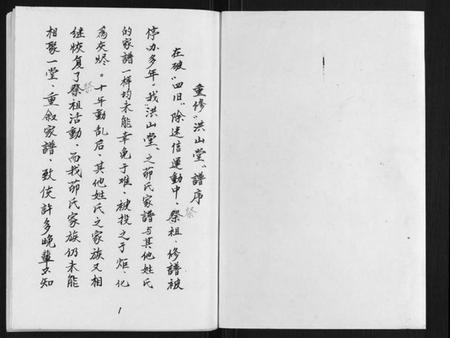 重修“洪山堂”谱序
在破“四旧”除迷信运动中，祭祖、修譜被
停办多年，我“洪山堂”之茆氏家譜与其他姓氏
的家譜一样均未能幸免于难，被投之于炬，化
為灰烬。十年動乱后，其他姓氏之家族又相
继恢复了祭祖活動，而我茆氏家族仍未能
相聚一堂，重叙家譜，致使許多晚輩不知
祭
祭
1